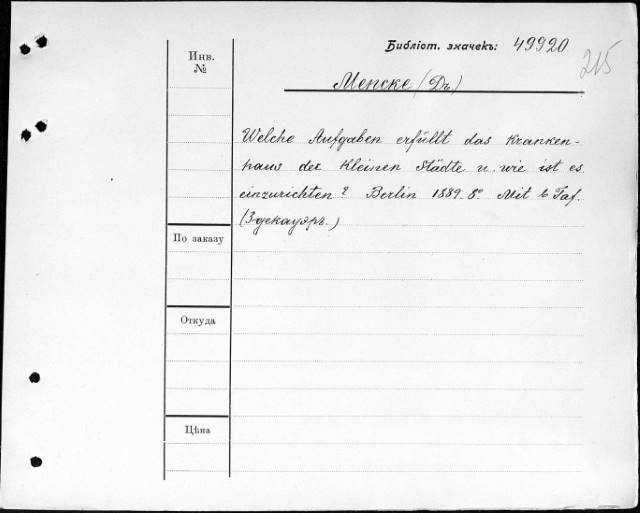 Библіот. значекъ: 49920
215
Инв.
№
Менске (Dr)
Welche Aufgaben erfüllt das Kranken-
haus der kleinen Städte u. wie ist es
einzurichten? Berlin 1889. 8º. Mit 6 Taf.
(Здекауэръ.)
По заказу
Откуда
Цѣна